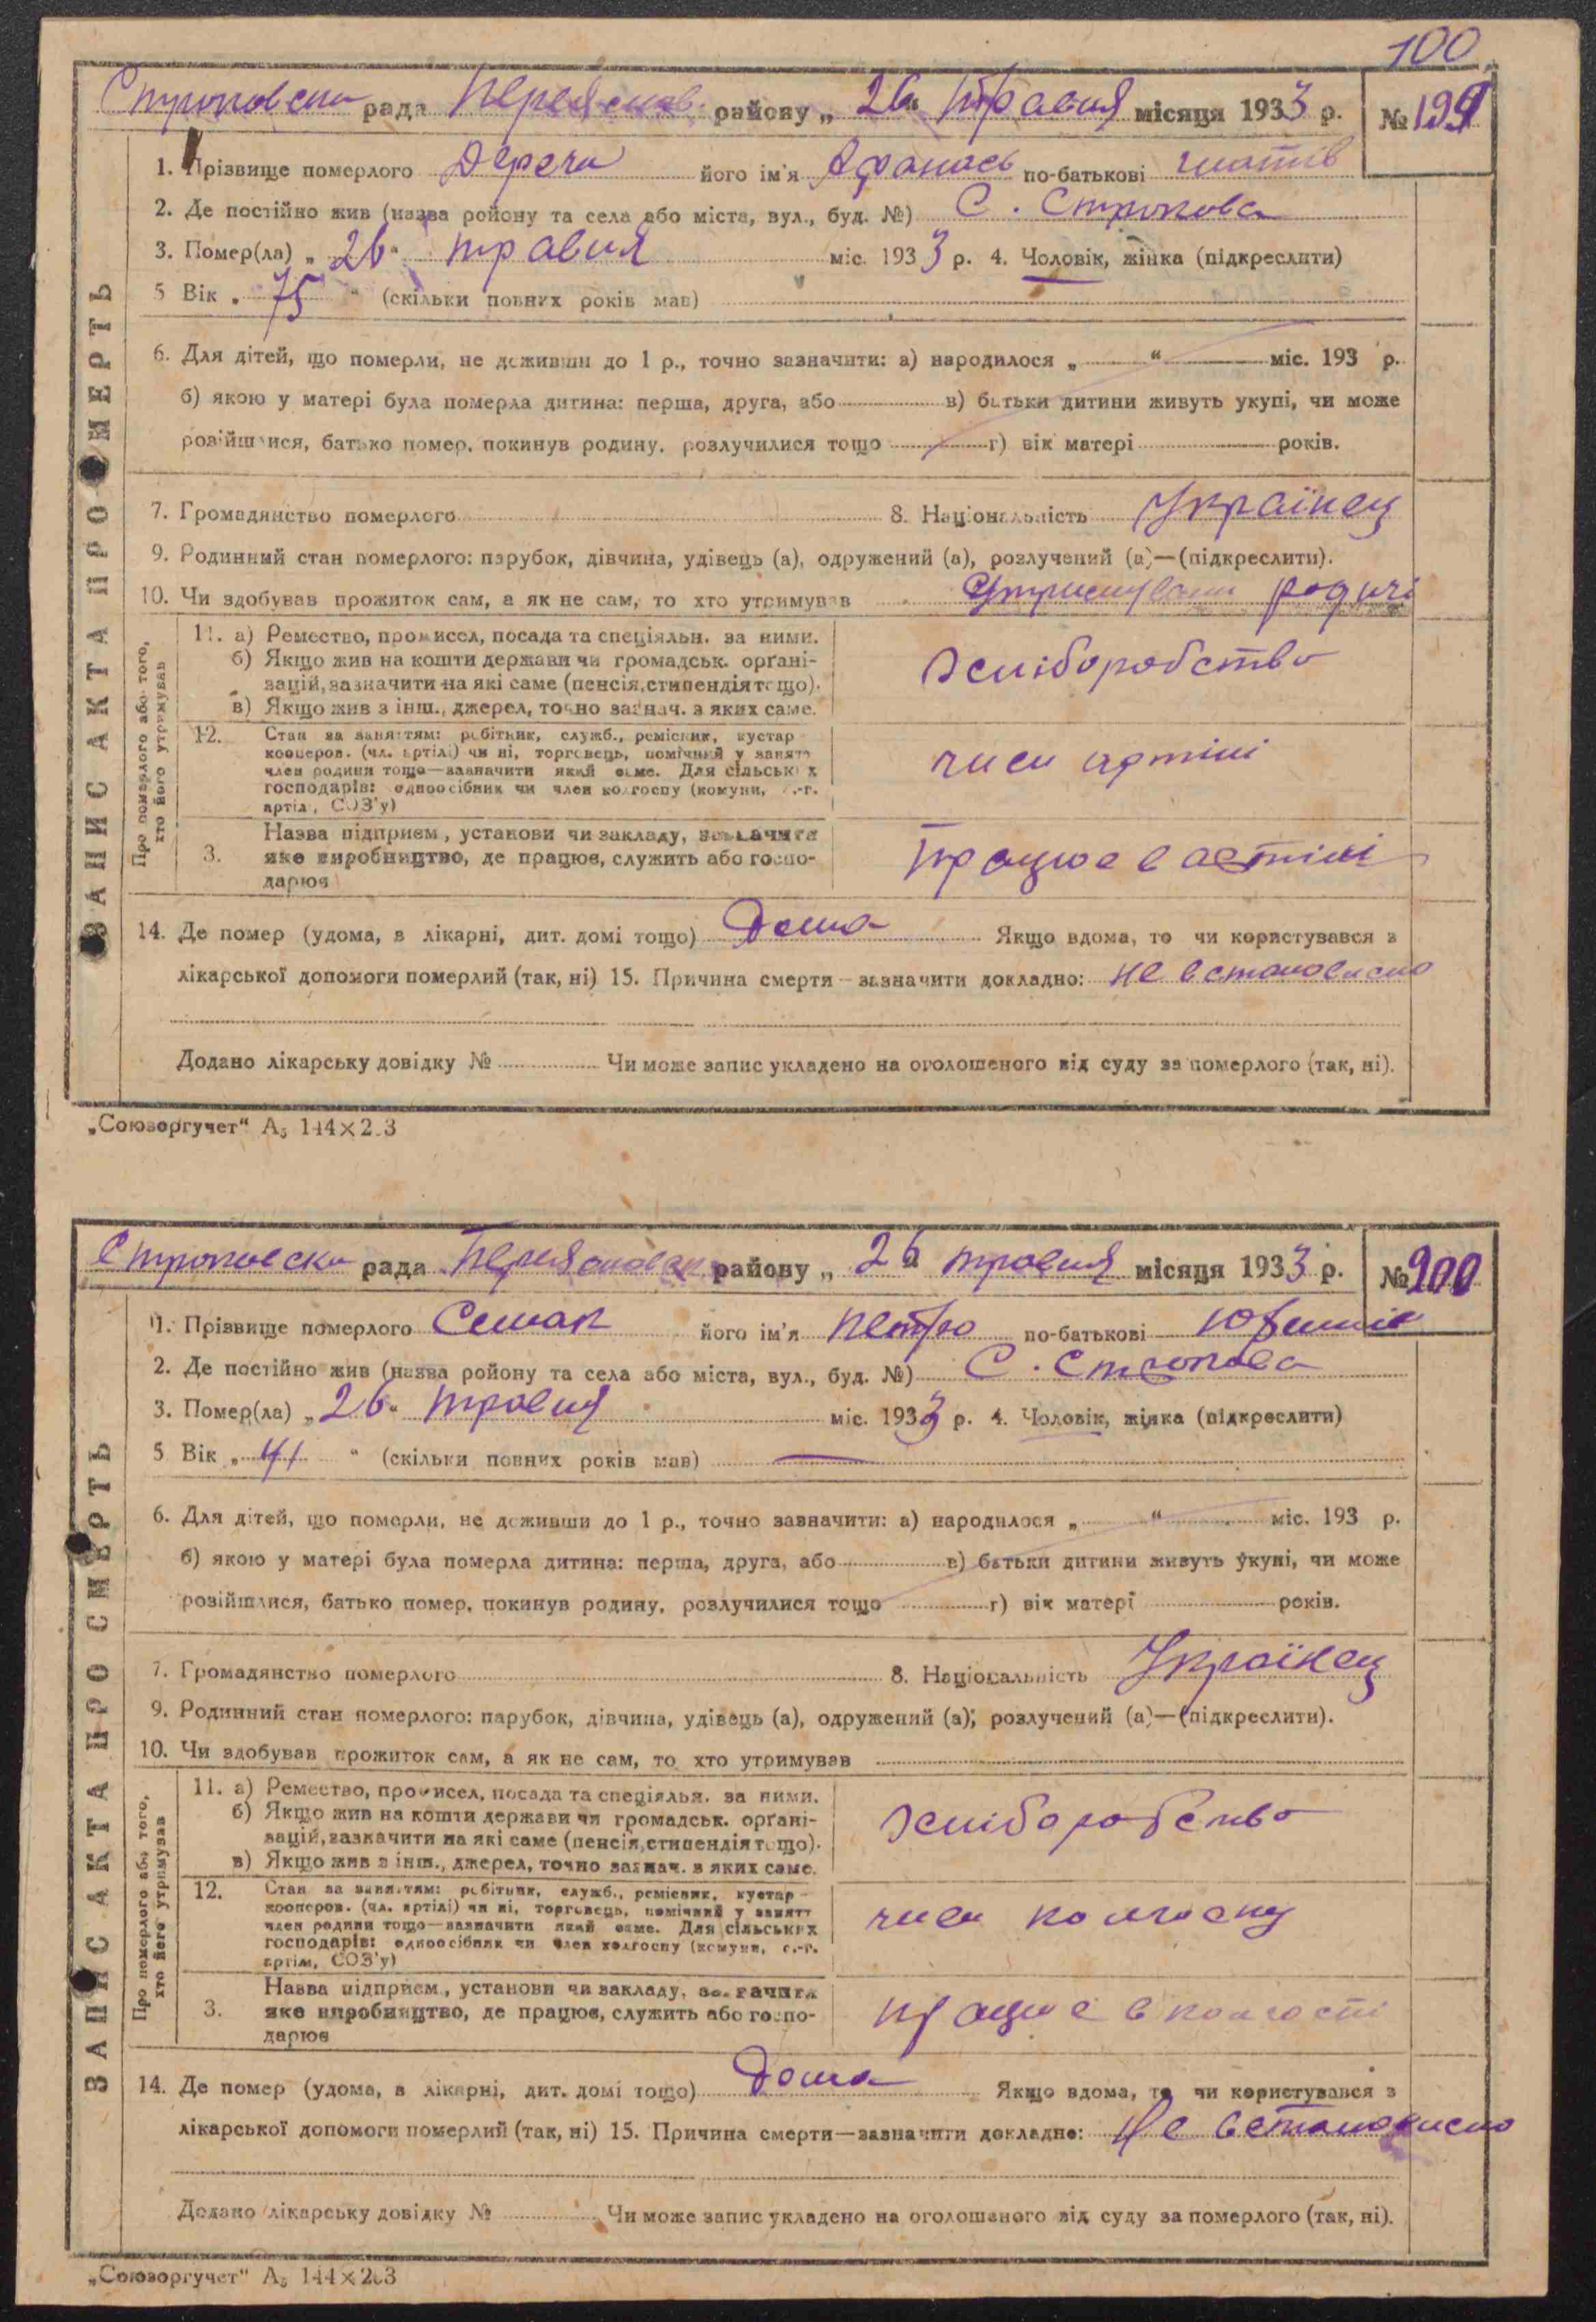 100
Строковська рада Переяслав. району „ 26 “ травня місяця 1933 р. № 199
1. Прізвище померлого Дереча його ім'я Афанась по-батькові
2. Де постійно жив (назва ройону та села або міста, вул., буд. №) С. Строкова
3. Помер(ла) „ 26 “ травня міс. 1933 р. 4. Чоловік, жінка (підкреслити)
5 Вік „ 75 “ (скільки повних років мав)
6. Для дітей, що померли, не доживши до 1 р., точно зазначити: а) народилося „ “ міс. 193 р.
б) якою у матері була померла дитина: перша, друга, або в) батьки дитини живуть укупі, чи може
розійшлися, батько помер, покинув родину, розлучилися тощо г) вік матері років.
7. Громадянство померлого 8. Національність Українец
9. Родинний стан померлого: парубок, дівчина, удівець (а), одружений (а), розлучений (а)—(підкреслити).
10. Чи здобував прожиток сам, а як не сам, то хто утримував Утримували родичі
ЗАПИС АКТА ПРО СМЕРТЬ
Про померлого або того, хто його утримував
11. а) Ремество, промисел, посада та спеціяльн. за ними.
б) Якщо жив на кошти держави чи громадськ. орґані-
зацій, зазначити на які саме (пенсія, стипендія тощо).
в) Якщо жив з інш., джерел, точно зазнач. з яких саме.
Хліборобство
12. Стан за заняттям: робітник, служб., ремісник, кустар
кооперов. (чл. артілі) чи ні, торговець, помічний у занятт
член родини тощо—зазначити який саме. Для сільських
господарів: одноосібник чи член колгоспу (комуни, с.-г.
артіл, СОЗ'у)
член артілі
3. Назва підприєм., установи чи закладу, зазначити
яке виробництво, де працює, служить або госпо-
дарює
Працює в артілі
14. Де помер (удома, в лікарні, дит. домі тощо) Дома Якщо вдома, то чи користувався з
лікарської допомоги померлий (так, ні) 15. Причина смерти—зазначити докладно: не встановлено
Додано лікарську довідку № Чи може запис укладено на оголошеного від суду за померлого (так, ні).
„Союзоргучет“ А5 144×203
Строковська рада Переяславск району „ 26 “ травня місяця 1933 р. № 200
1. Прізвище померлого Семак його ім'я Петро по-батькові
2. Де постійно жив (назва ройону та села або міста, вул., буд. №) С. Строкова
3. Помер(ла) „ 26 “ травня міс. 1933 р. 4. Чоловік, жінка (підкреслити)
5 Вік „ 41 “ (скільки повних років мав)
6. Для дітей, що померли, не доживши до 1 р., точно зазначити: а) народилося „ “ міс. 193 р.
б) якою у матері була померла дитина: перша, друга, або в) батьки дитини живуть укупі, чи може
розійшлися, батько помер, покинув родину, розлучилися тощо г) вік матері років.
7. Громадянство померлого 8. Національність Українец
9. Родинний стан померлого: парубок, дівчина, удівець (а), одружений (а), розлучений (а)—(підкреслити).
10. Чи здобував прожиток сам, а як не сам, то хто утримував
ЗАПИС АКТА ПРО СМЕРТЬ
Про померлого або того, хто його утримував
11. а) Ремество, промисел, посада та спеціяльн. за ними.
б) Якщо жив на кошти держави чи громадськ. орґані-
зацій, зазначити на які саме (пенсія, стипендія тощо).
в) Якщо жив з інш., джерел, точно зазнач. з яких саме.
Хліборобство
12. Стан за заняттям: робітник, служб., ремісник, кустар
кооперов. (чл. артілі) чи ні, торговець, помічний у занятт
член родини тощо—зазначити який саме. Для сільських
господарів: одноосібник чи член колгоспу (комуни, с.-г.
артіл, СОЗ'у)
член колгоспу
3. Назва підприєм., установи чи закладу, зазначити
яке виробництво, де працює, служить або госпо-
дарює
працює в колгоспі
14. Де помер (удома, в лікарні, дит. домі тощо) Дома Якщо вдома, то чи користувався з
лікарської допомоги померлий (так, ні) 15. Причина смерти—зазначити докладно: Не встановлено
Додано лікарську довідку № Чи може запис укладено на оголошеного від суду за померлого (так, ні).
„Союзоргучет“ А5 144×203